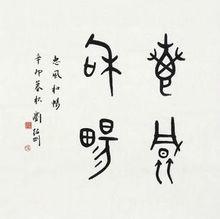 惠風
和暢
惠風和暢
辛卯暮秋
劉紹剛